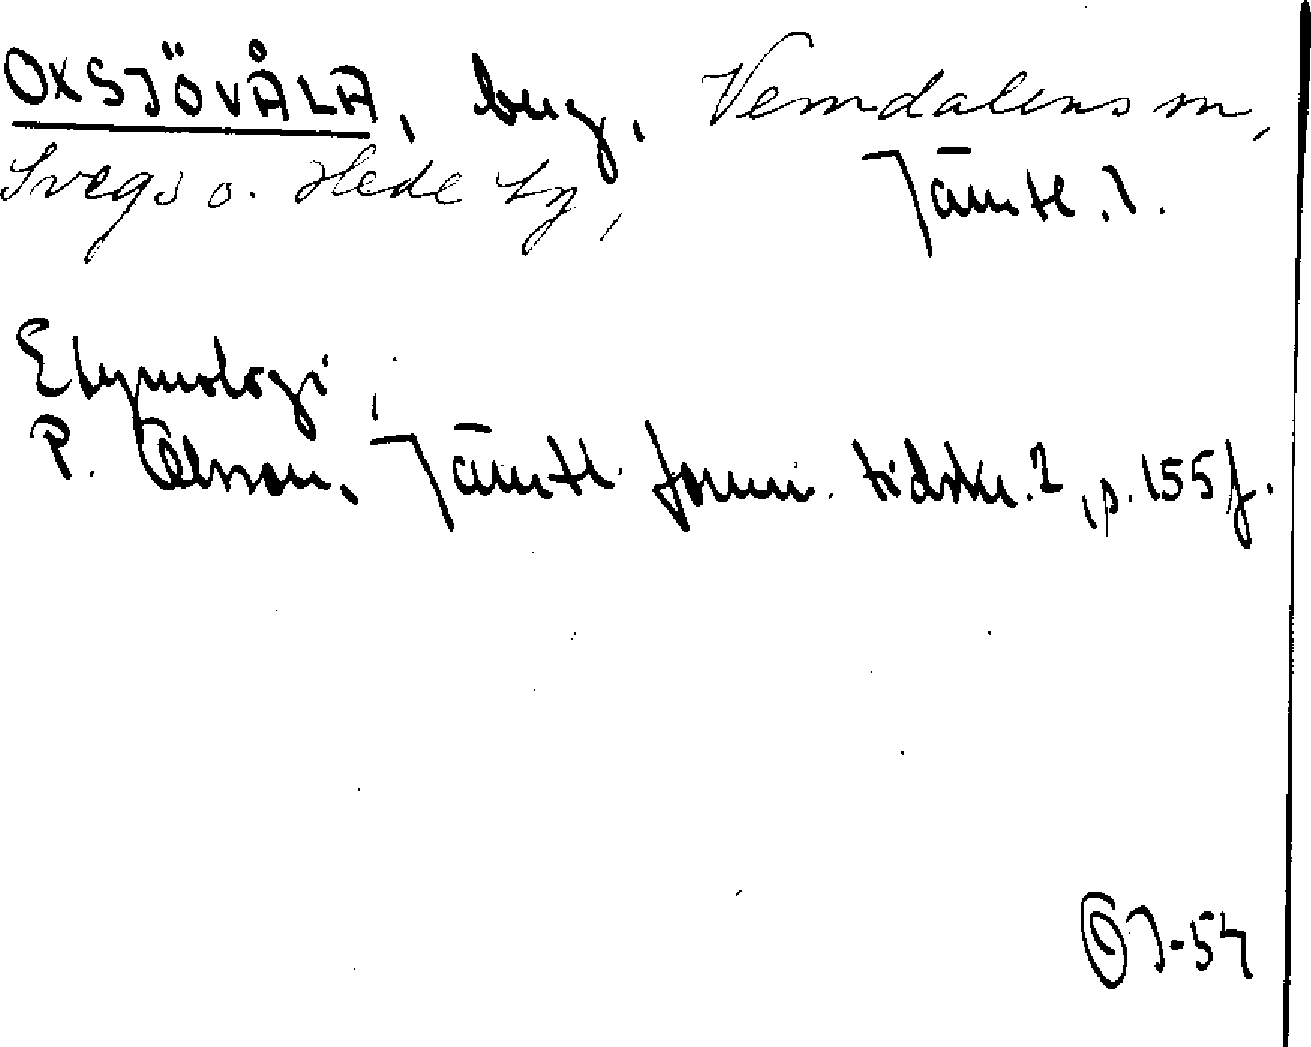 OXSJÖVÅLA, berg, Vemdalens sn,
Svegs o. Hede tg, Jämtl. l.
Etymologi,
P. Olsson, Jämtl. fornm. tidskr. 2, p. 155 f.
-54